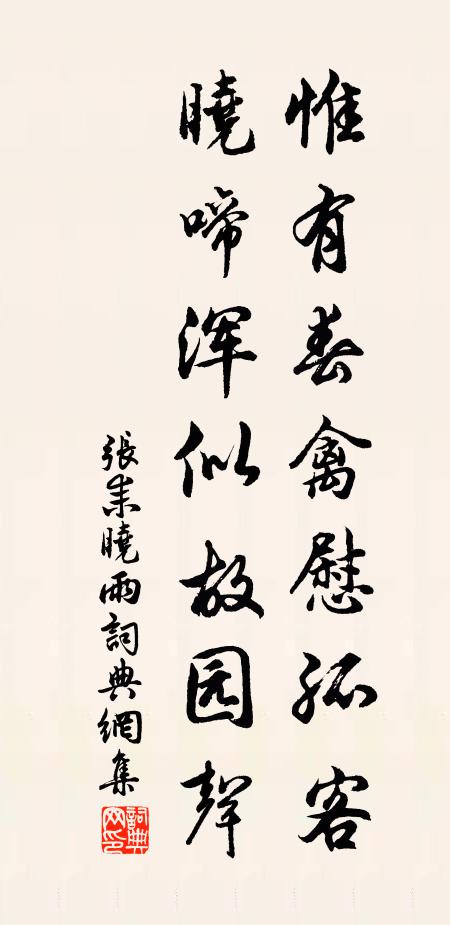 惟有春禽慰孤客
曉啼渾似故园聲
張耒曉雨詞典網集
詞典网印